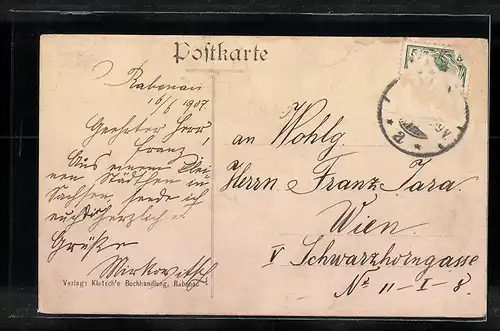 Postkarte
Rabenau
16/8 1907.
Geehrter Herr
Franz!
Aus einem klei-
nen Städtchen in
Sachsen, sende ich
herzlich
Grüße
Mirkovitsch
Verlag: Klotsch'e Buchhandlung, Rabenau
an Wohlg
Herrn Franz Jara
Wien.
V Schwarzhorngasse
No 11-I-8.
5
* a *